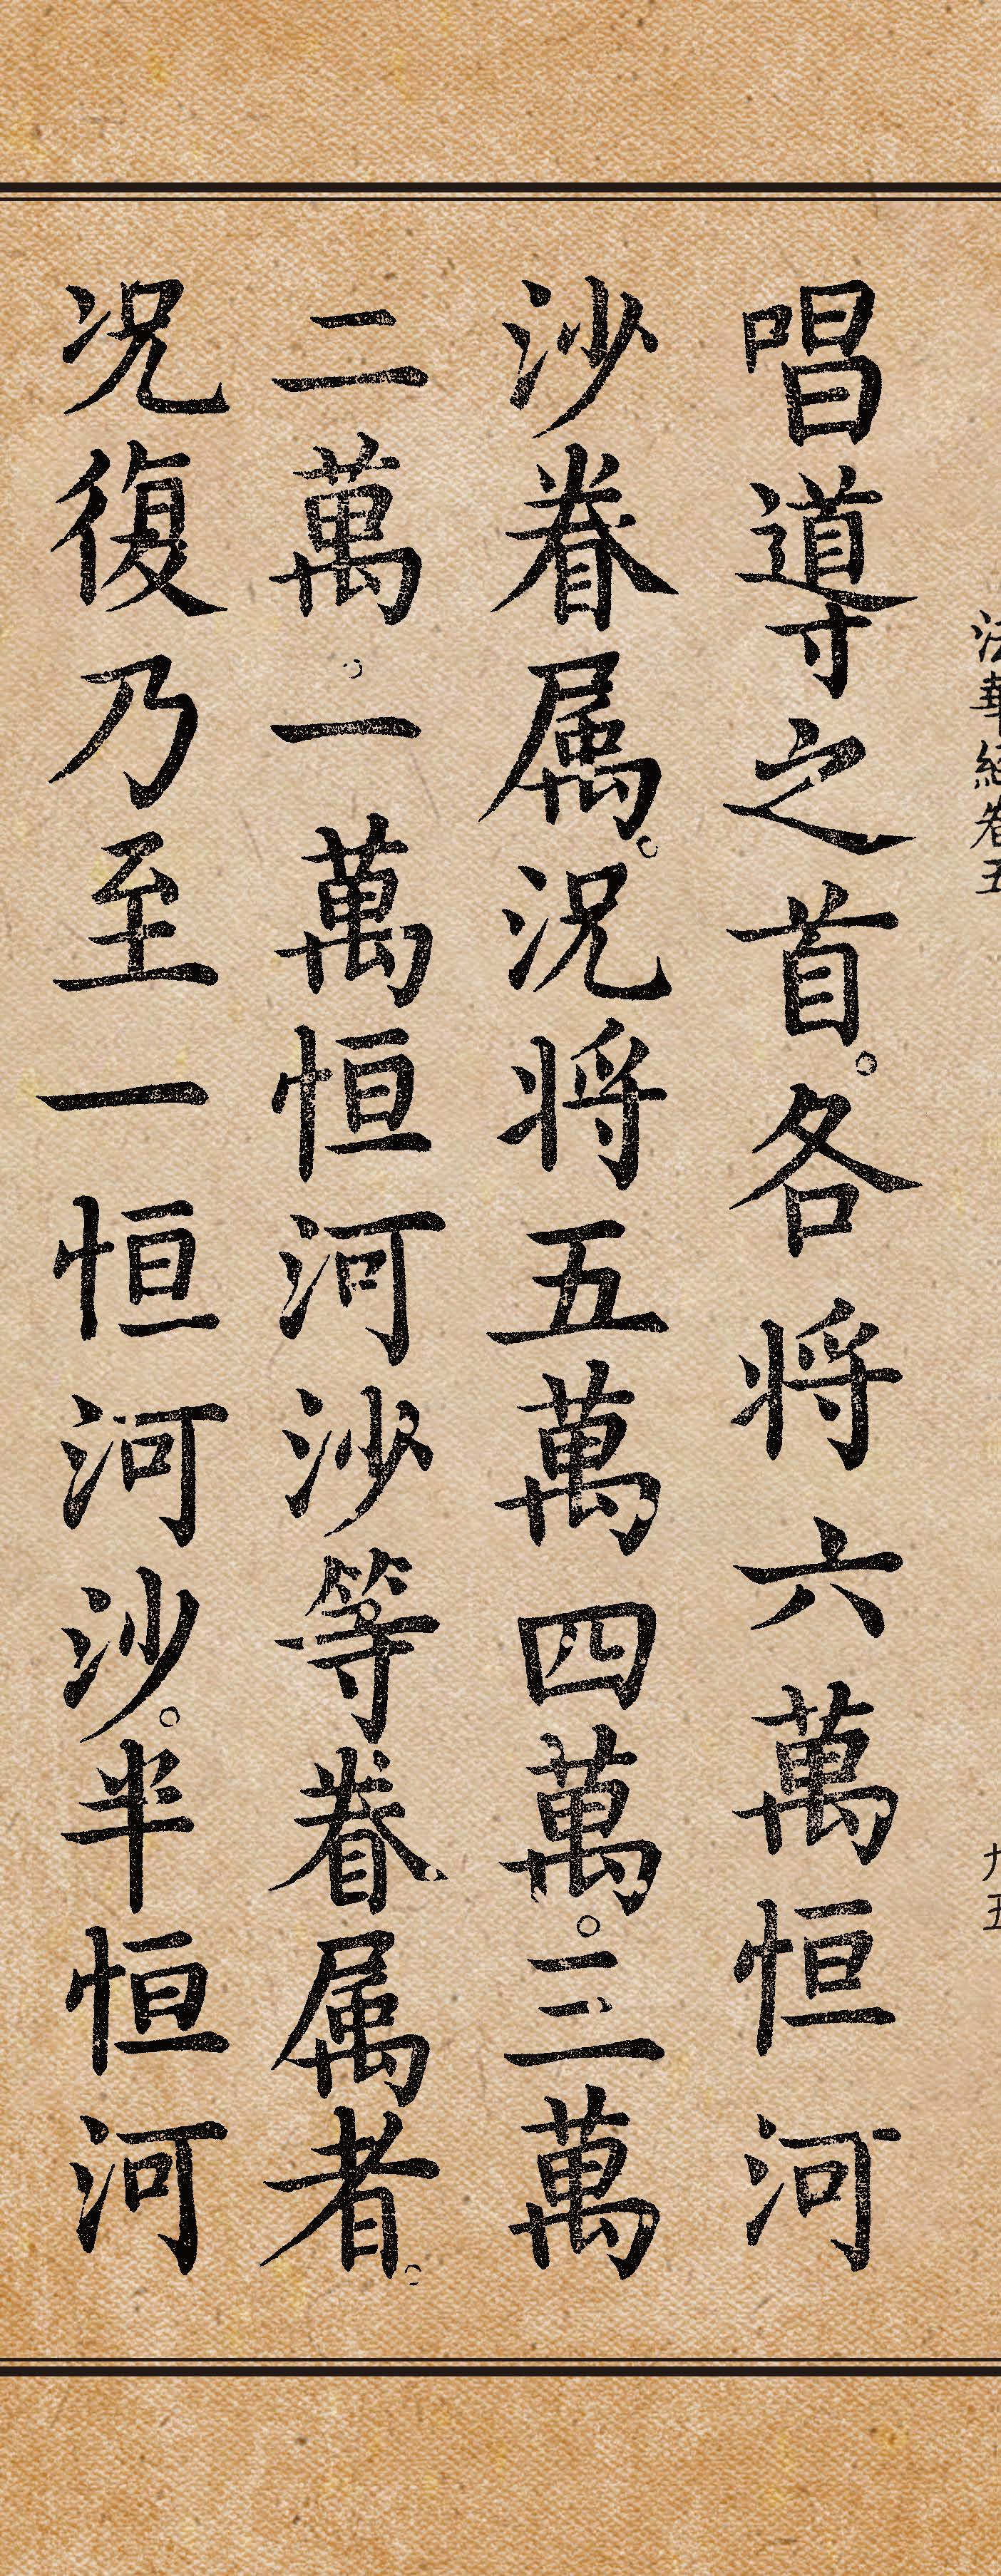 法華經卷五
九五
唱導之首。各將六萬恒河
沙眷属。況将五萬四萬。三萬
二萬。一萬恒河沙等眷属者。
况復乃至一恒河沙。半恒河